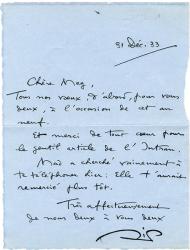 31 Déc. 33
Chère Meg,
Tous nos vœux, d'abord, pour vous
deux, à l'occasion de cet an
neuf.
Et merci de tout cœur pour
le gentil article de l'Intran.
a cherché vainement à
te téléphoner hier. Elle t'aurait
remercié plus tôt.
Très affectueusement
de nous deux à vous deux